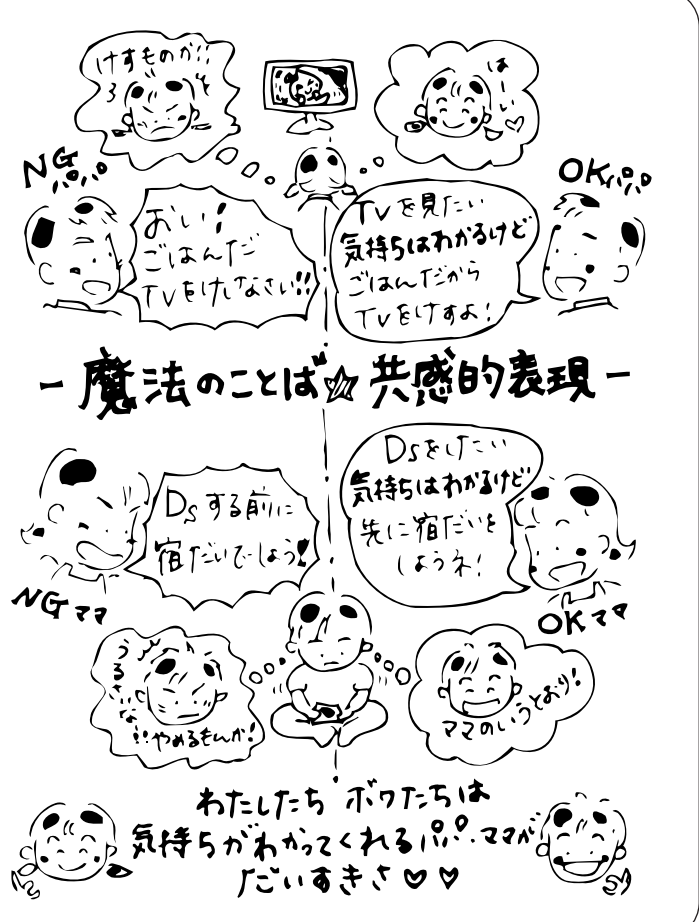 けすものか!!
はーい♡
NGパパ
OKパパ
おい!
ごはんだ
TVをけしなさい!!
TVを見たい
気持ちはわかるけど
ごはんだから
TVをけすよ!
-魔法のことば☆共感的表現-
Dsする前に
宿だいでしょう!
Dsをしたい
気持ちはわかるけど
先に宿だいを
しようネ!
NGママ
OKママ
うるさいな!!
やめるもんか!
ママのいうとおり!
わたしたち ボクたちは
気持ちがわかってくれるパパ.ママが
だいすきさ♡♡